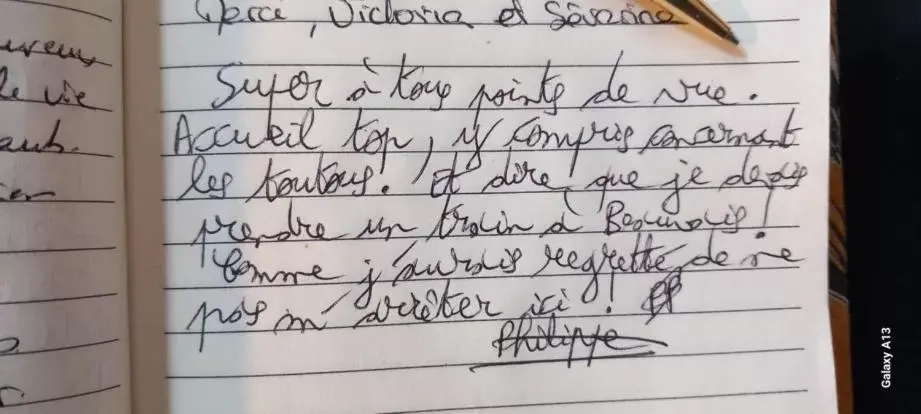 Merci, Victoria et Séverine
Super à tous points de vue.
Accueil top, y compris concernant
les toutous! Et dire que je devais
prendre un train à Beauvais!
Comme j'aurais regretté de ne
pas m'arrêter ici!
Philippe
le vie
Galaxy A13